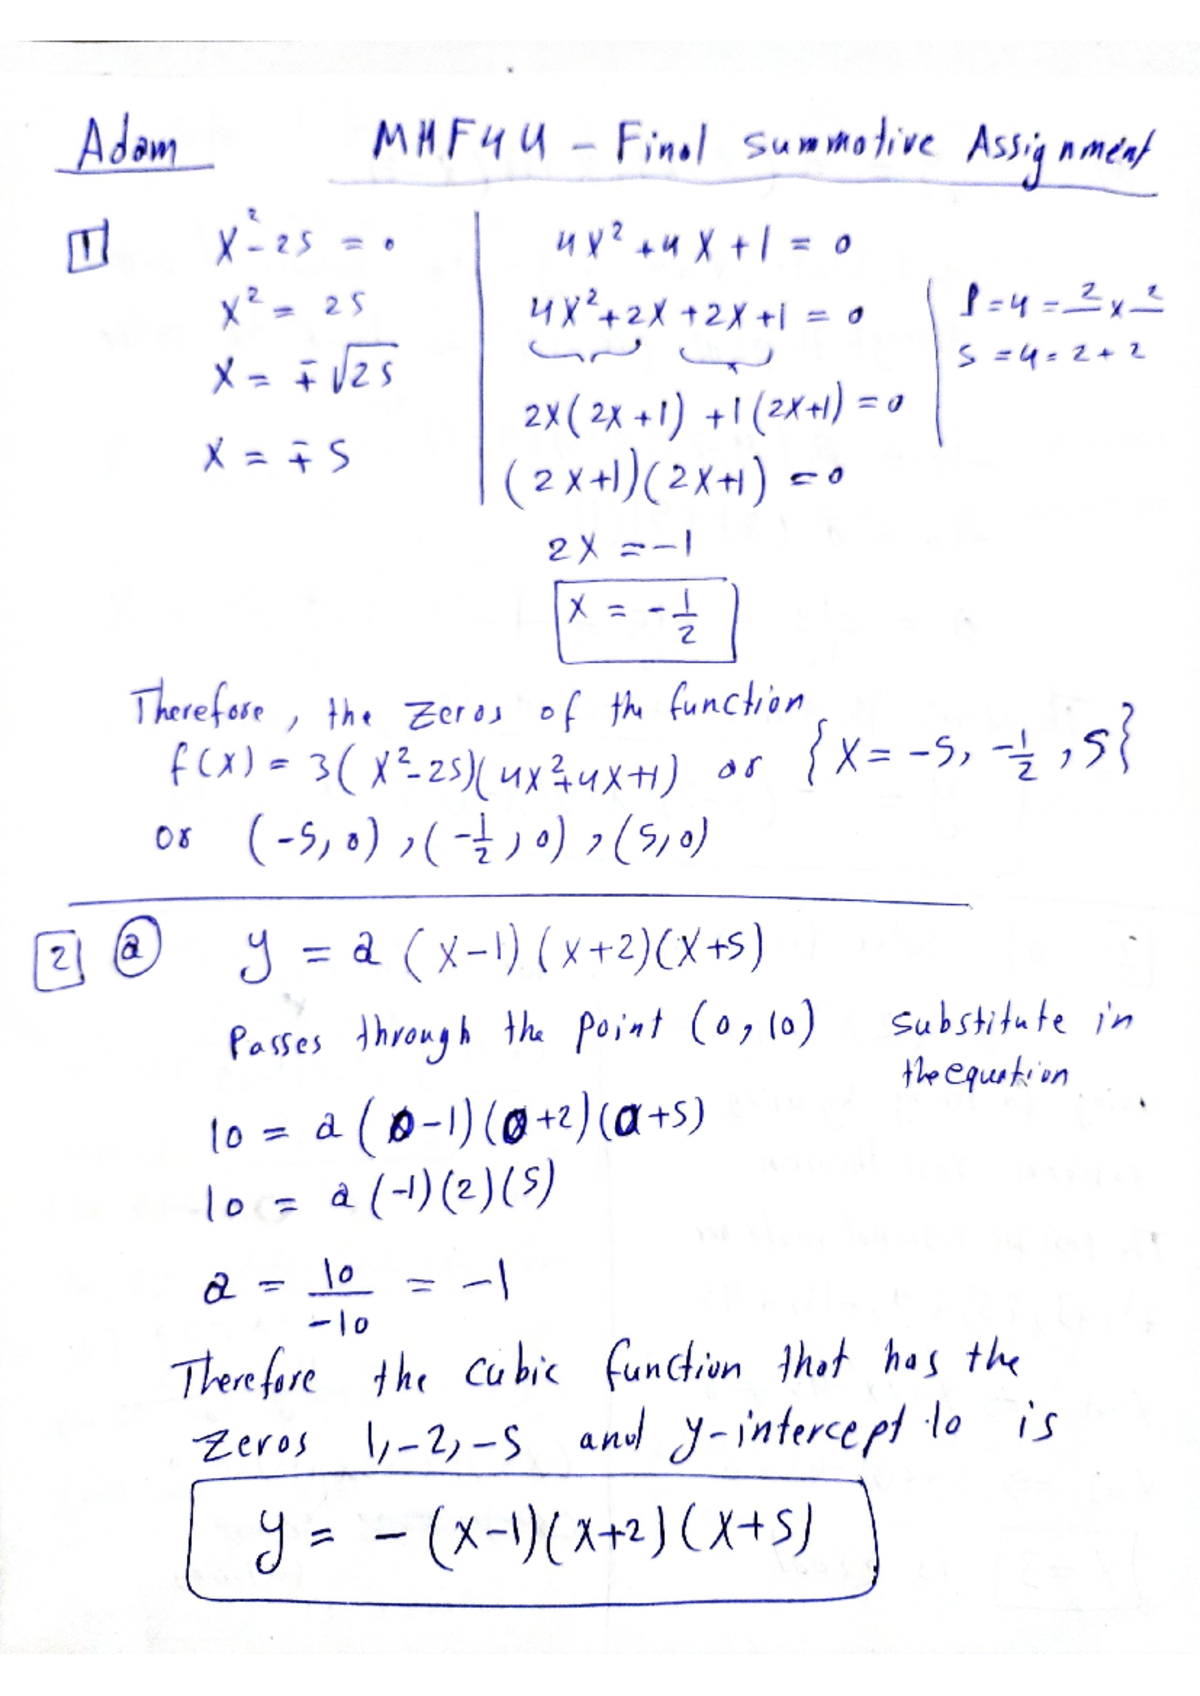 Adam MHF4U - Final Summative Assignment
1 x² - 25 = 0
x² = 25
x = ∓√25
x = ∓5
4x² + 4x + 1 = 0
4x² + 2x + 2x + 1 = 0
2x(2x+1) + 1(2x+1) = 0
(2x+1)(2x+1) = 0
2x = -1
x = -1/2
P = 4 = 2 x 2
S = 4 = 2 + 2
Therefore, the zeros of the function
f(x) = 3(x²-25)(4x²+4x+1) or {x = -5, -1/2, 5}
or (-5, 0), (-1/2, 0), (5, 0)
2 a y = a (x-1)(x+2)(x+5)
Passes through the point (0, 10) substitute in
the equation
10 = a (0-1)(0+2)(0+5)
10 = a (-1)(2)(5)
a = 10/-10 = -1
Therefore the cubic function that has the
zeros 1, -2, -5 and y-intercept 10 is
y = - (x-1)(x+2)(x+5)